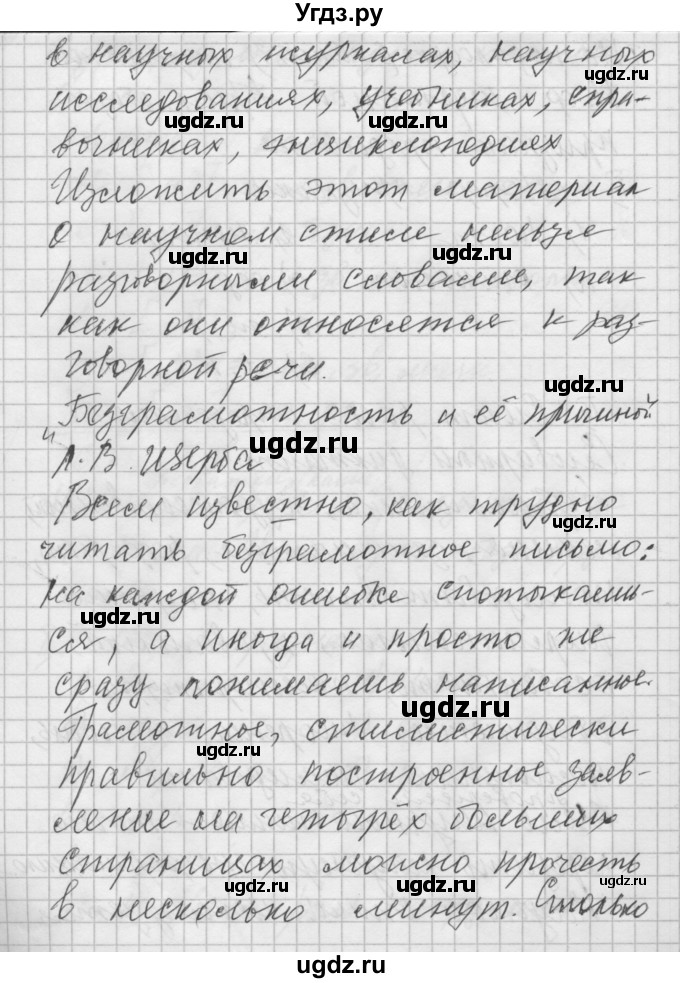 Угдз.ру
в научных журналах, научных
ugdz.ru
исследованиях, учебниках, спра-
ugdz.ru ugdz.ru
вычниках, энциклопедиях
ugdz.ru
Изложить этот материал
о научном стиле нельзя
ugdz.ru ugdz.ru
разговорными словами, так
как они относятся к раз-
говорной речи.
ugdz.ru
"Безграмотность и её причиной
ugdz.ru
Л. В. Щерба
Всем известно, как трудно
ugdz.ru
читать безграмотное письмо:
на каждой ошибке спотыкаешь-
ugdz.ru
ся, а иногда и просто не
сразу понимаешь написанное.
ugdz.ru
Грамотное, стилистически
ugdz.ru
правильно построенное заяв-
ление на четырёх больших
страницах можно прочесть
ugdz.ru ugdz.ru ugdz.ru
в несколько минут. Столько
ugdz.ru